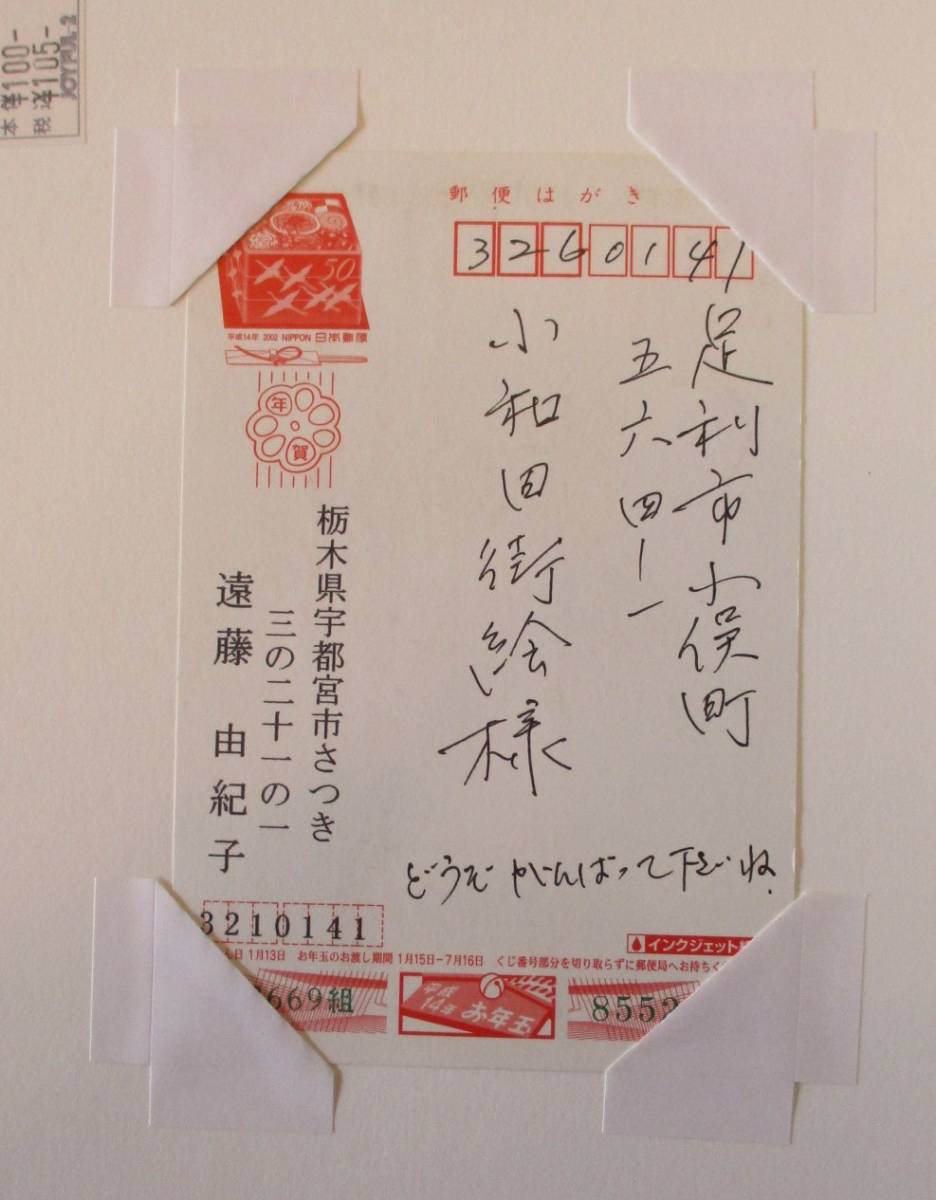 本体¥100-
税込¥105-
JOYFUL-2
郵便はがき
3260141
足利市小俣町
五六四ー一
小和田街絵様
どうぞがんばって下さいね.
50
平成14年 2002 NIPPON 日本郵便
年
賀
栃木県宇都宮市さつき
三の二十一の一
遠藤 由紀子
3210141
インクジェット
日 1月13日 お年玉のお渡し期間 1月15日−7月16日 くじ番号部分を切り取らずに郵便局へお持ちく
669組
平成14年 お年玉
8552